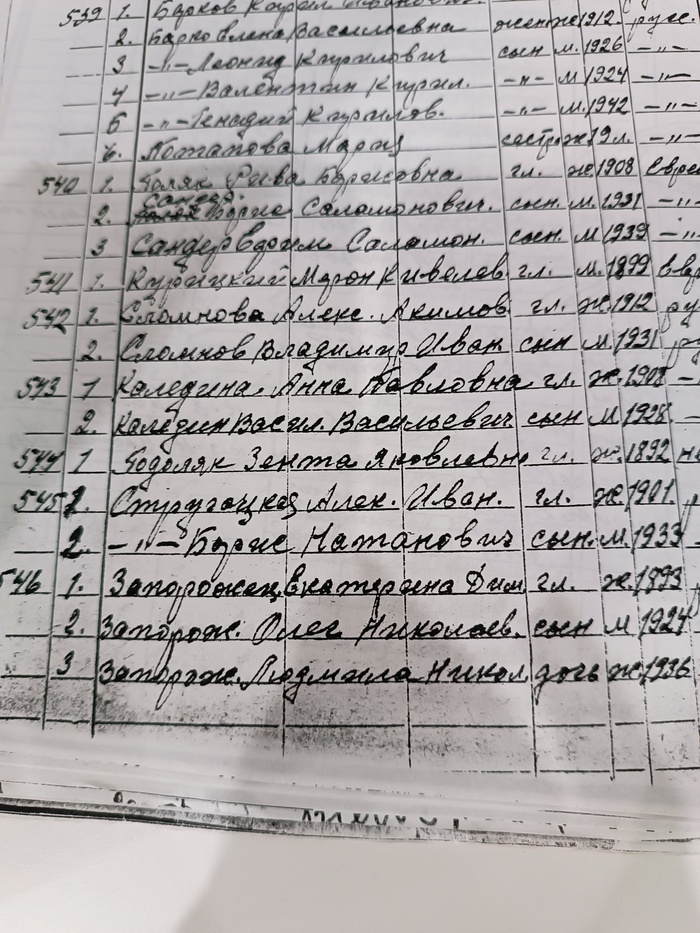 539 1. Барков
2. Барко Елена Васильевна жена ж 1912. русс.
3 -"- Леонид Кирилович сын м. 1926 -"-
4 -"- Валентин Кирил. -"- м 1924 -"-
5 -"- Генадий Кирилов. -"- м. 1942 -"-
6. Потапова Мария сестра ж 19 л. -"-
540 1. Рева Борисовна гл. ж 1908 Евре
2. Сандер. Борис Саламонович. сын. м. 1931 -"-
3 Сандер Вадим Саламон. сын м 1939 -"-
541 1. Курицкий Марон Кивелев гл. м. 1899 Евр
542 1. Сломнова Алекс. Акимов гл. ж 1912 ру
2. Сломнов Владимир Иван сын м. 1931
543 1 Каледина Анна Павловна гл. ж. 1908 -
2. Каледин Васил. Васильевич сын м 1928 -
544 1 Подоляк Зента Яковлевн. гл. ж. 1892
545 1. Стругацкая Алек. Иван. гл. ж 1901
2. -"- Борис Натанович сын. м. 1933
546 1. Запорожец Екатерина Дим. гл. ж. 1893
2. Запорож. Олег Николаев. сын м 1924
3 Запорож. Людмила Никол. дочь ж. 1936